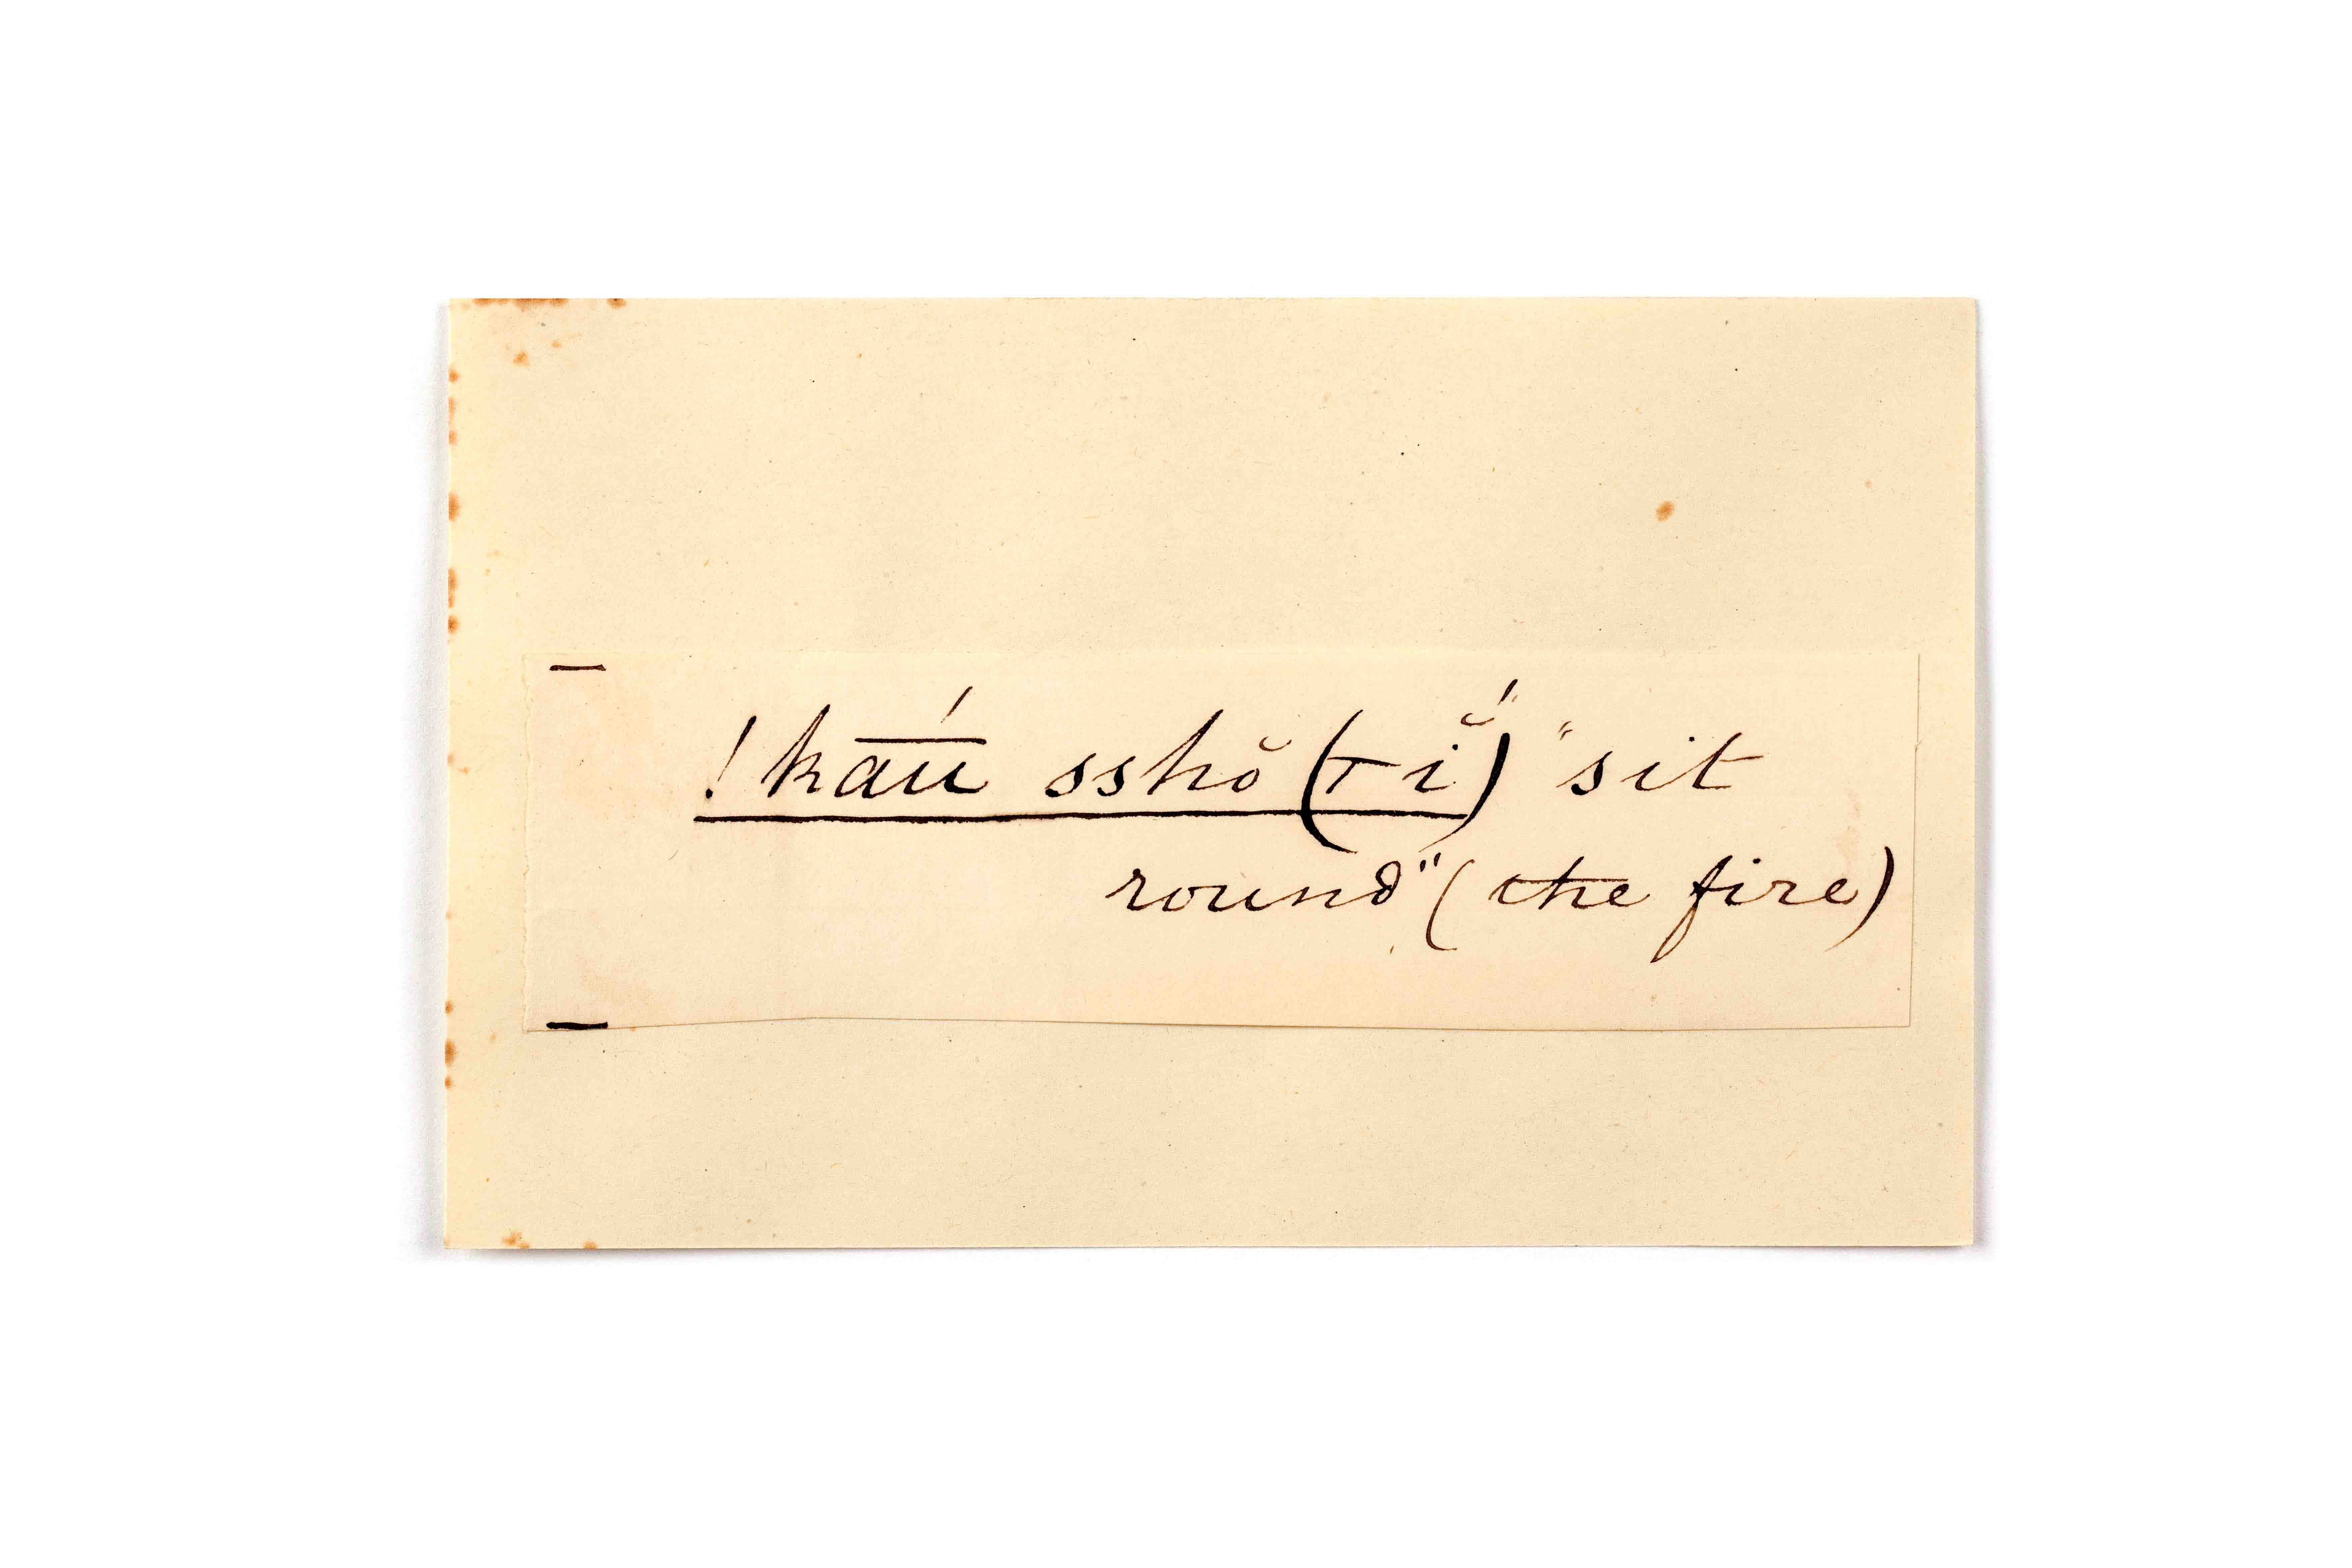 !ka͞ú sshŏ(Tĭ́) "sit
round" (the fire)